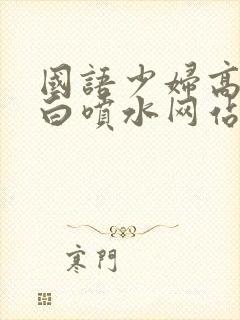 國語少婦高
白噴水网佔
寒門